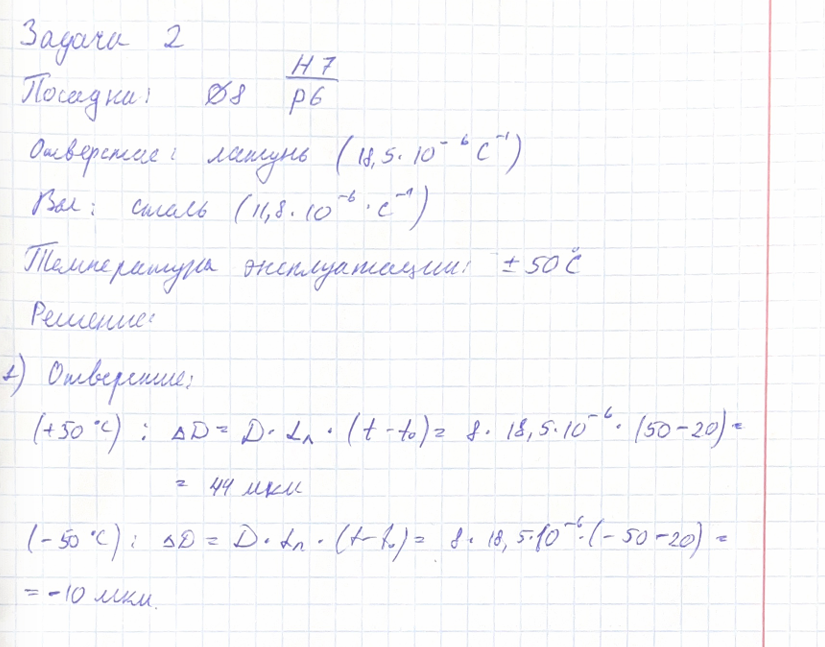 Задача 2
Посадка: ∅8 H7/p6
Отверстие: латунь (18,5·10⁻⁶ C⁻¹)
Вал: сталь (11,8·10⁻⁶·c⁻¹)
Температура эксплуатации: ±50°C
Решение:
1) Отверстие:
(+50°C): ΔD = D·αл·(t-t₀) = 8·18,5·10⁻⁶·(50-20) =
= 44 мкм
(-50°C): ΔD = D·αл·(t-t₀) = 8·18,5·10⁻⁶·(-50-20) =
= -10 мкм.